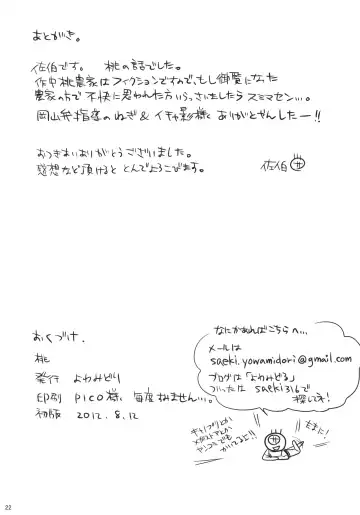 あとがき。
佐伯です。 桃の話でした。
作中桃農家はフィクションですので、もし御覧になった
農家の方で不快に思われた方いらっさいましたらスミマセン…。
岡山弁指導のねぎ& イキャ影様 ありがとやんしたー!!
おつきあいありがとうございました。
感想など頂けると とんでよろこびます。
佐伯
なにかあればこちらへ…
メールは
saeki.yowamidori@gmail.com
ブログは「よわみどる」
ついったは saeki316で
探しいネ!
おくづけ.
桃
発行 よわみどり
印刷 PICO様 毎度すいません…。
初版 2012.8.12
たまに!
22